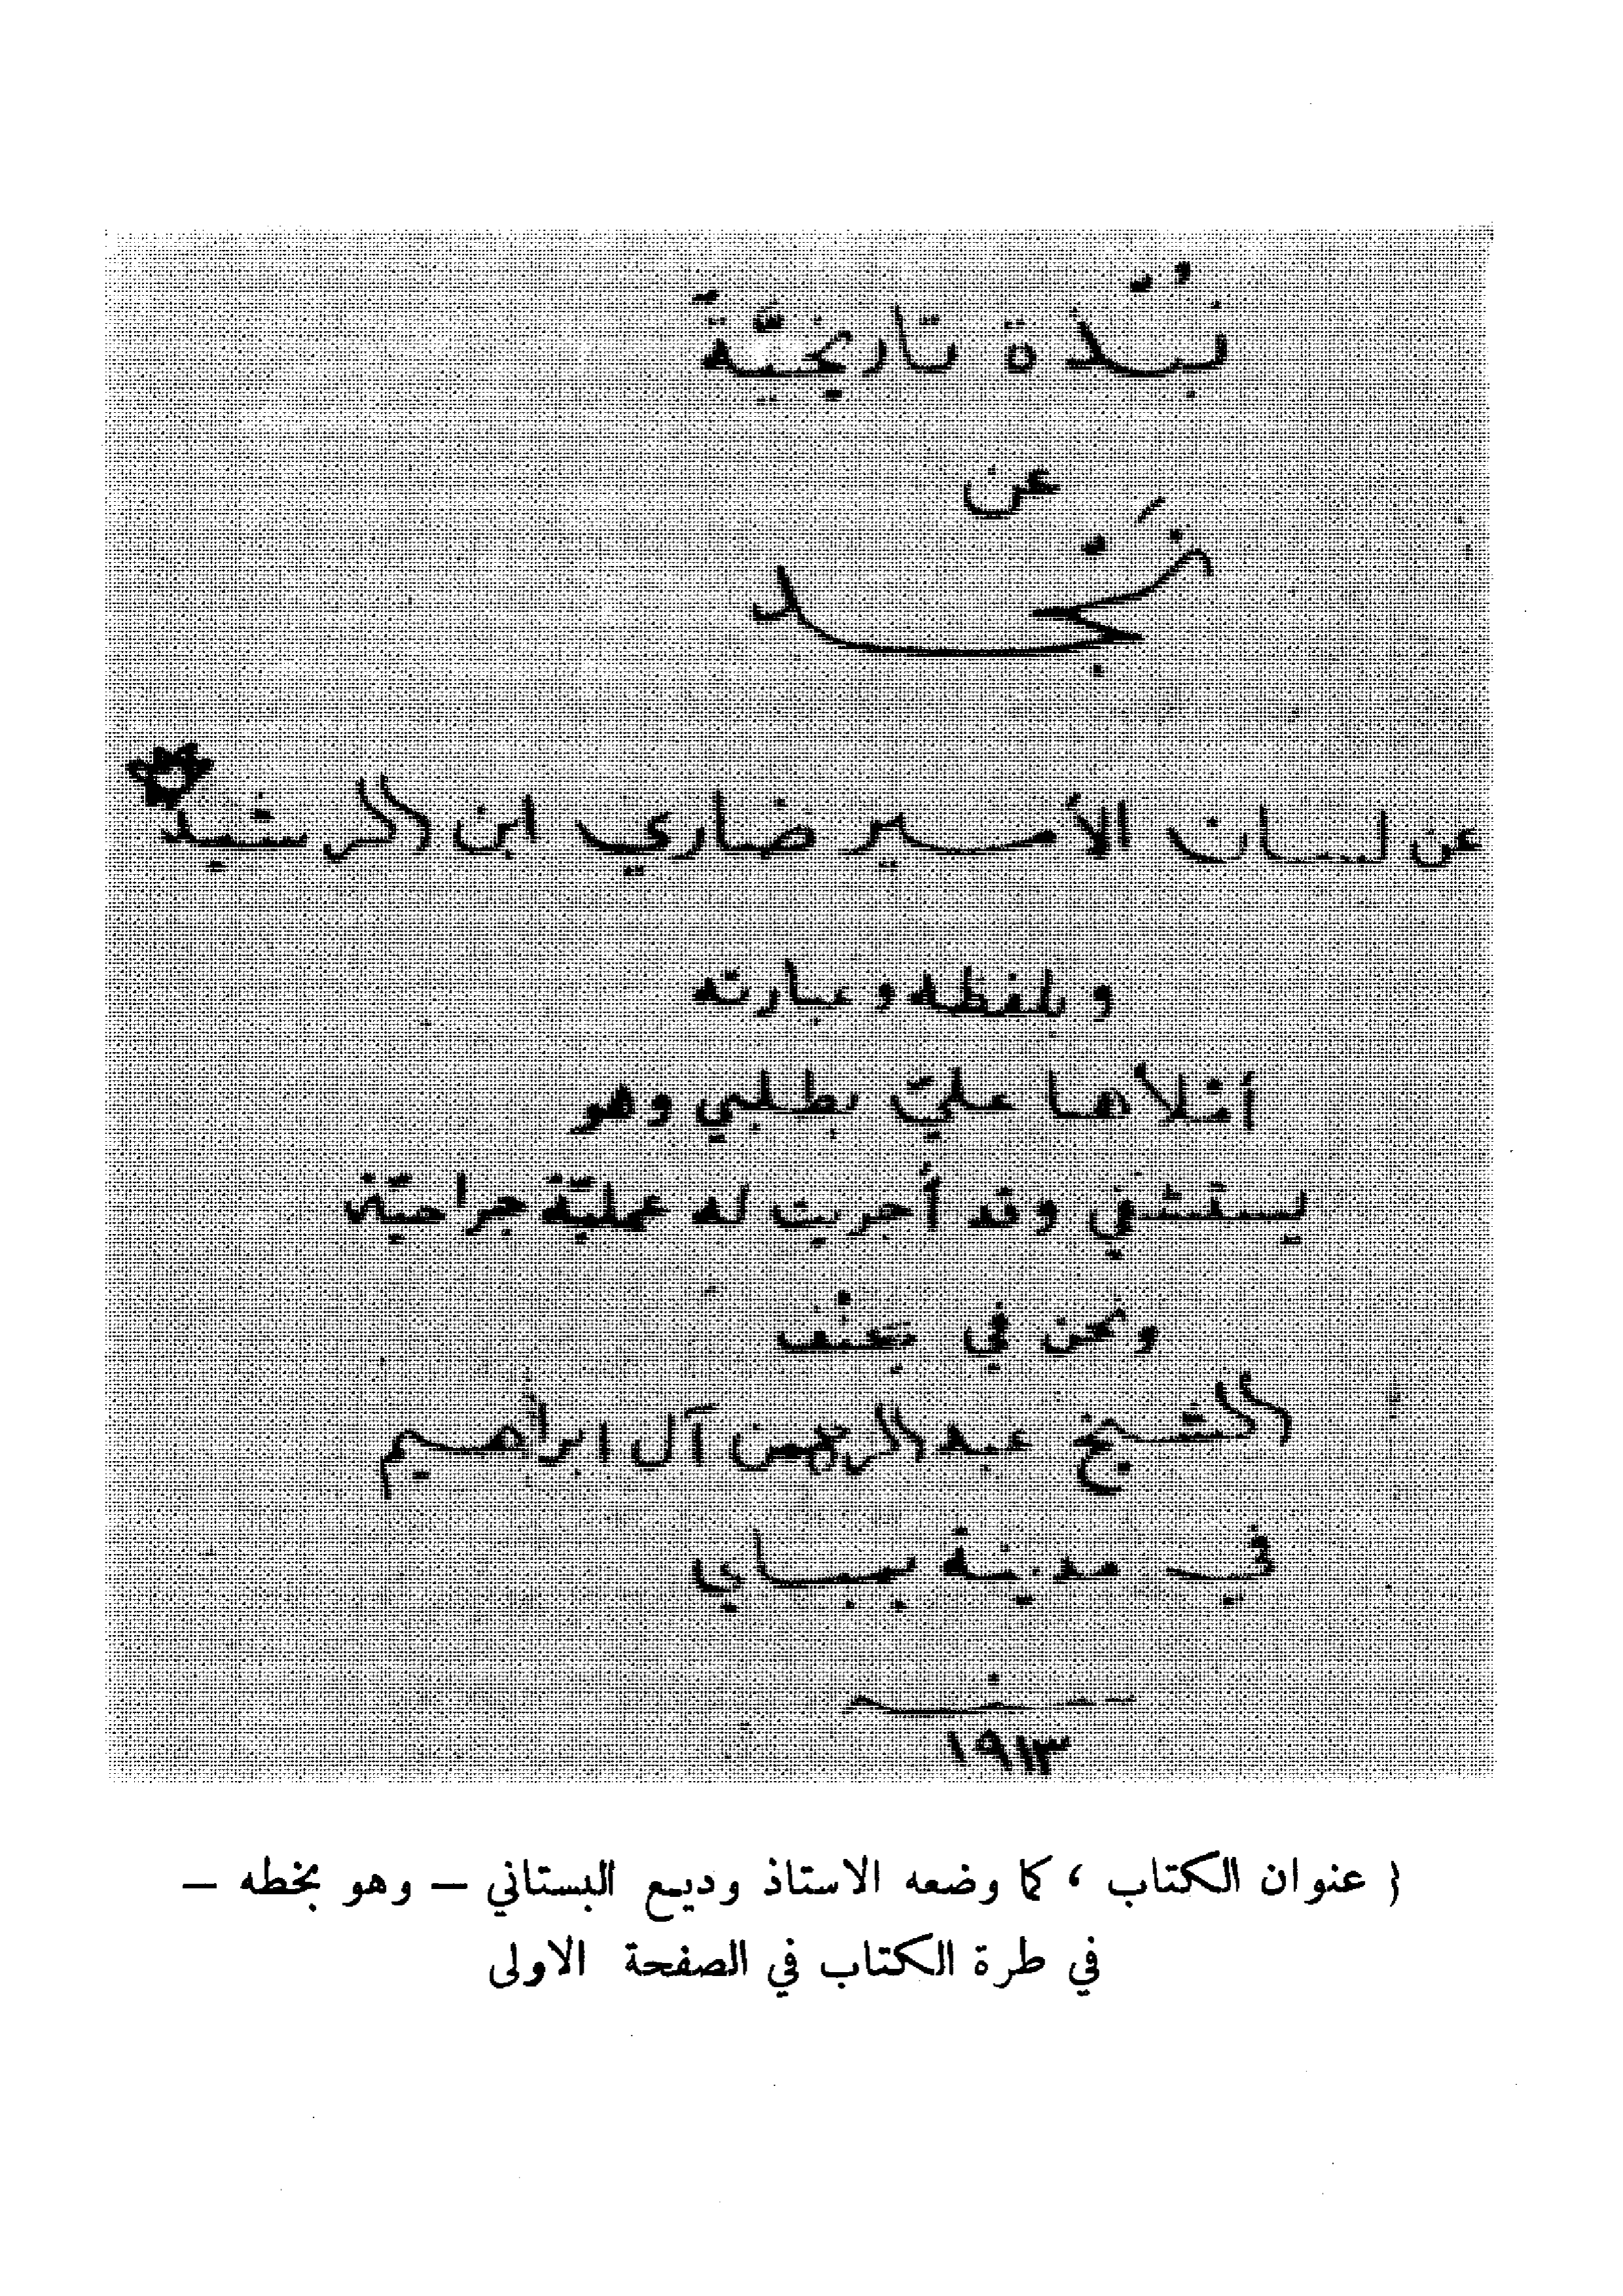 نُبْذة تاريخيّة
عن
نَجْد
عن لسان الأمير ضاري ابن الرشيد
وبلفظه وعبارته
أملاها عليّ بطلبي وهو
يستشفي وقد أجريت له عمليّة جراحيّة
ونحن في
الشيخ عبد الرحمن آل ابراهيم
في مدينة بمباي
سنة
١٩١٣
{ عنوان الكتاب ، كما وضعه الاستاذ وديع البستاني – وهو بخطه –
في طرة الكتاب في الصفحة الاولى